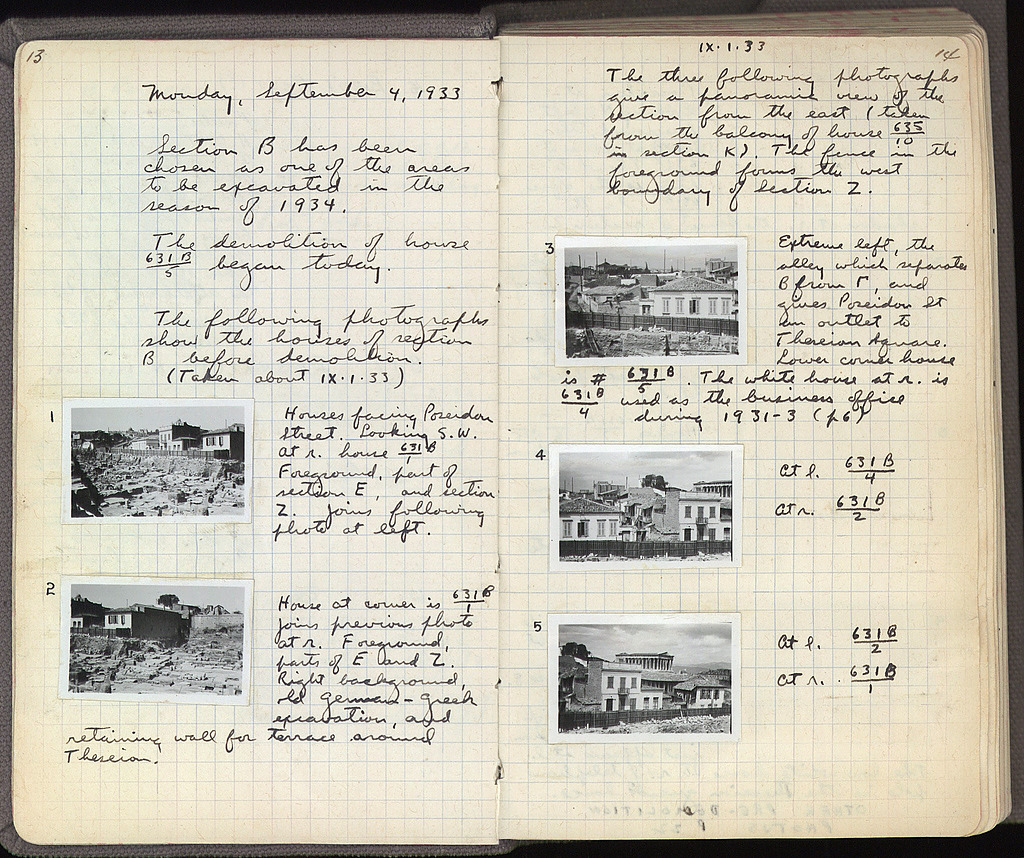 13
Monday, September 4, 1933
Section B has been
chosen as one of the areas
to be excavated in the
season of 1934.
The demolition of house
631 B/5 began today.
The following photographs
show the houses of section
B before demolition.
(Taken about IX·1·33)
1
Houses facing Poseidon
Street. Looking S.W.
At r. house 631 B/1
Foreground, part of
section E, and section
Z. Joins following
photo at left.
2
House at corner is 631 B/1
Joins previous photo
at r. Foreground,
parts of E and Z.
Right background,
old German-Greek
excavation, and
retaining wall for terrace around
Theseion.
IX·1·33
14
The three following photographs
give a panoramic view of the
section from the east (taken
from the balcony of house 635/10
in section K). The fence in the
foreground forms the west
boundary of Section Z.
3
Extreme left, the
alley which separates
B from Γ, and
gives Poseidon St
an outlet to
Theseion Square.
Lower corner house
is # 631 B/5. The white house at r. is
631 B/4 used as the business office
during 1931-3 (p6)
4
At l. 631 B/4
At r. 631 B/2
5
At l. 631 B/2
At r. 631 B/1